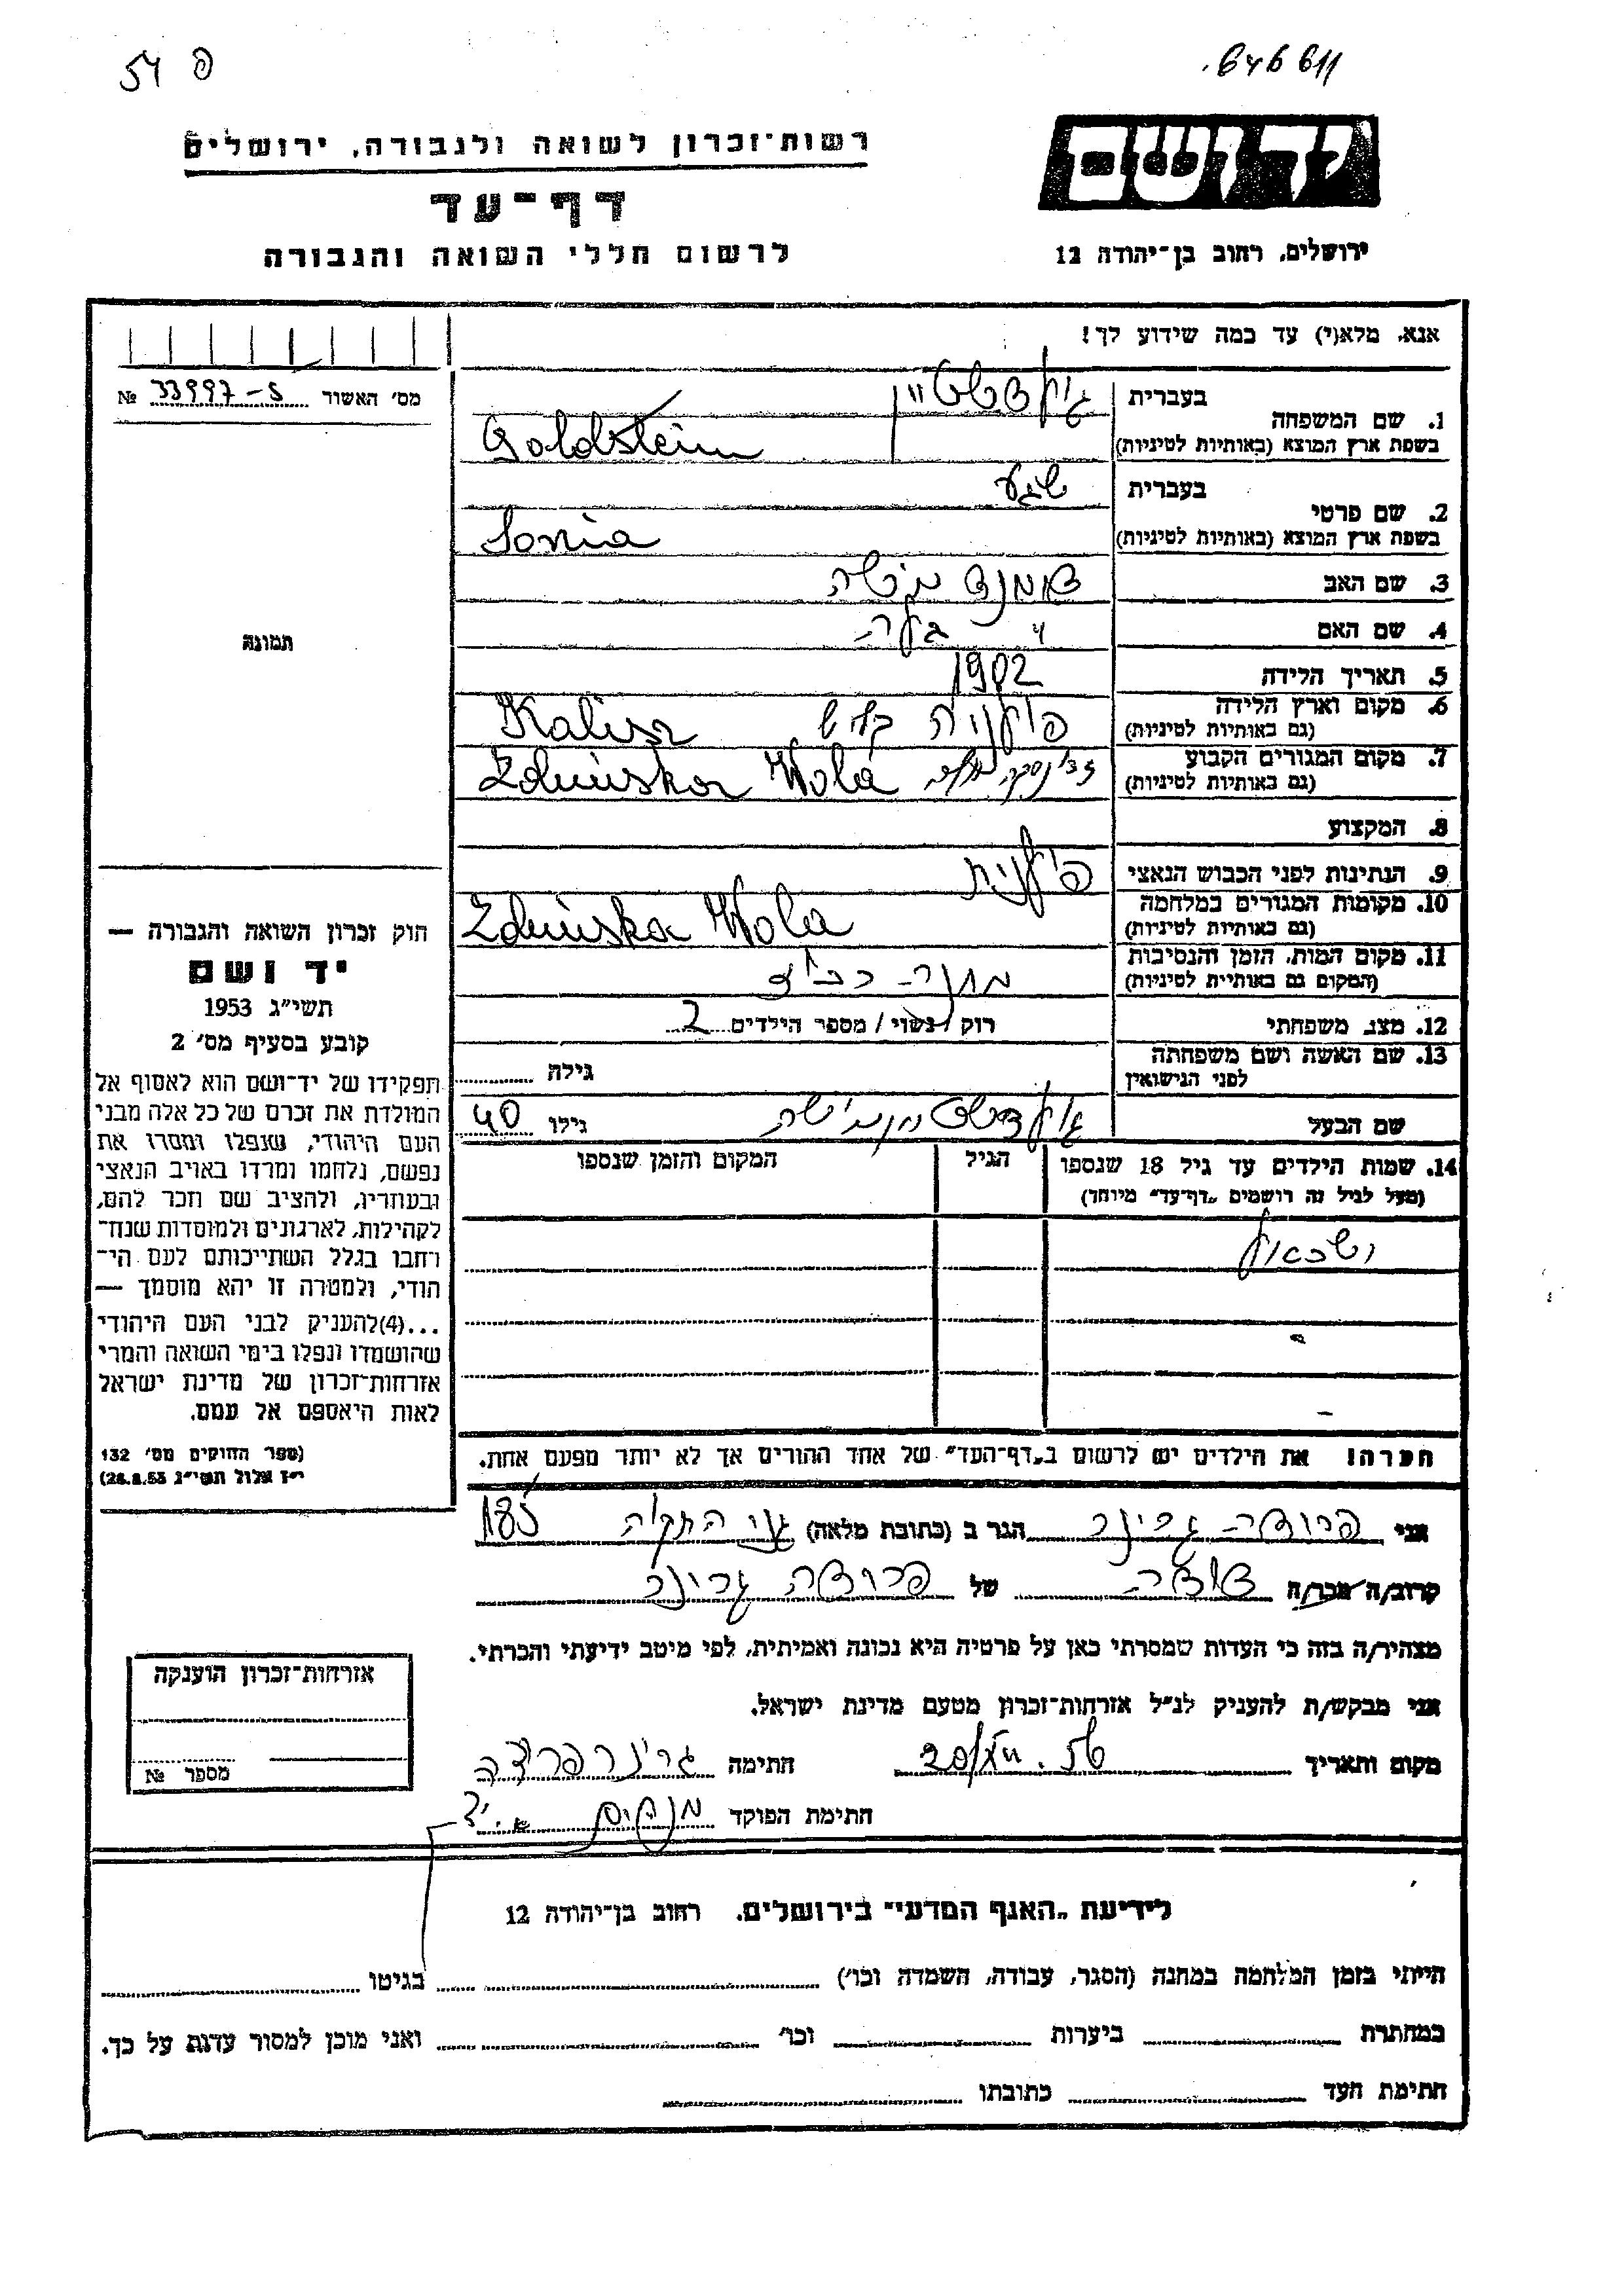 54 פ
646611
רשות־זכרון לשואה ולגבורה, ירושלים
יד ושם
דף־עד
לרשום חללי השואה והגבורה
ירושלים, רחוב בן־יהודה 12
אנא, מלא(י) עד כמה שידוע לך!
מס׳ האשור 33997-S №
1. שם המשפחה
בעברית גולדשטיין
בשפת ארץ המוצא (באותיות לטיניות) Goldstein
2. שם פרטי
בעברית
בשפת ארץ המוצא (באותיות לטיניות) Sonia
3. שם האב
4. שם האם
5. תאריך הלידה 1902
6. מקום וארץ הלידה פולניה קליש Kalisz
(גם באותיות לטיניות)
7. מקום המגורים הקבוע Zduńska Wola
(גם באותיות לטיניות)
8. המקצוע
9. הנתינות לפני הכבוש הנאצי פולנית
10. מקומות המגורים במלחמה Zduńska Wola
(גם באותיות לטיניות)
11. מקום המות, הזמן והנסיבות
(המקום גם באותיית לטיניות)
12. מצב משפחתי רוק / נשוי / מספר הילדים 2
13. שם האשה ושם משפחתה
לפני הנישואין גילה
שם הבעל גילו 40
14. שמות הילדים עד גיל 18 שנספו הגיל המקום והזמן שנספו
(מעל לגיל זה רושמים „דף־עד״ מיוחד)
תמונה
חוק זכרון השואה והגבורה —
יד ושם
תשי״ג 1953
קובע בסעיף מס׳ 2
תפקידו של יד־ושם הוא לאסוף אל
המולדת את זכרם של כל אלה מבני
העם היהודי, שנפלו ומסרו את
נפשם, נלחמו ומרדו באויב הנאצי
ובעוזריו, ולהציב שם וזכר להם,
לקהילות, לארגונים ולמוסדות שנח־
רחבו בגלל השתייכותם לעם הי־
הודי, ולמטרה זו יהא מוסמך —
...(4)להעניק לבני העם היהודי
שהושמדו ונפלו בימי השואה והמרי
אזרחות־זכרון של מדינת ישראל
לאות היאספם אל עמם.
(ספר החוקים מס׳ 132
י״ז אלול תשי״ג 28.8.53)
הערה! את הילדים יש לרשום ב„דף־העד״ של אחד ההורים אך לא יותר מפעם אחת.
אני הגר ב (כתובת מלאה) 185
קרוב/ה מכר/ה דודה של
מצהיר/ה בזה כי העדות שמסרתי כאן על פרטיה היא נכונה ואמיתית, לפי מיטב ידיעתי והכרתי.
אני מבקש/ת להעניק לנ״ל אזרחות־זכרון מטעם מדינת ישראל.
מקום ותאריך חתימה
חתימת הפוקד
אזרחות־זכרון הוענקה
מספר №
לידיעת „האגף המדעי״ בירושלים, רחוב בן־יהודה 12
הייתי בזמן המלחמה במחנה (הסגר, עבודה, השמדה וכו׳) בגיטו
במחתרת ביערות וכו׳ ואני מוכן למסור עדות על כך.
חתימת העד כתובתו